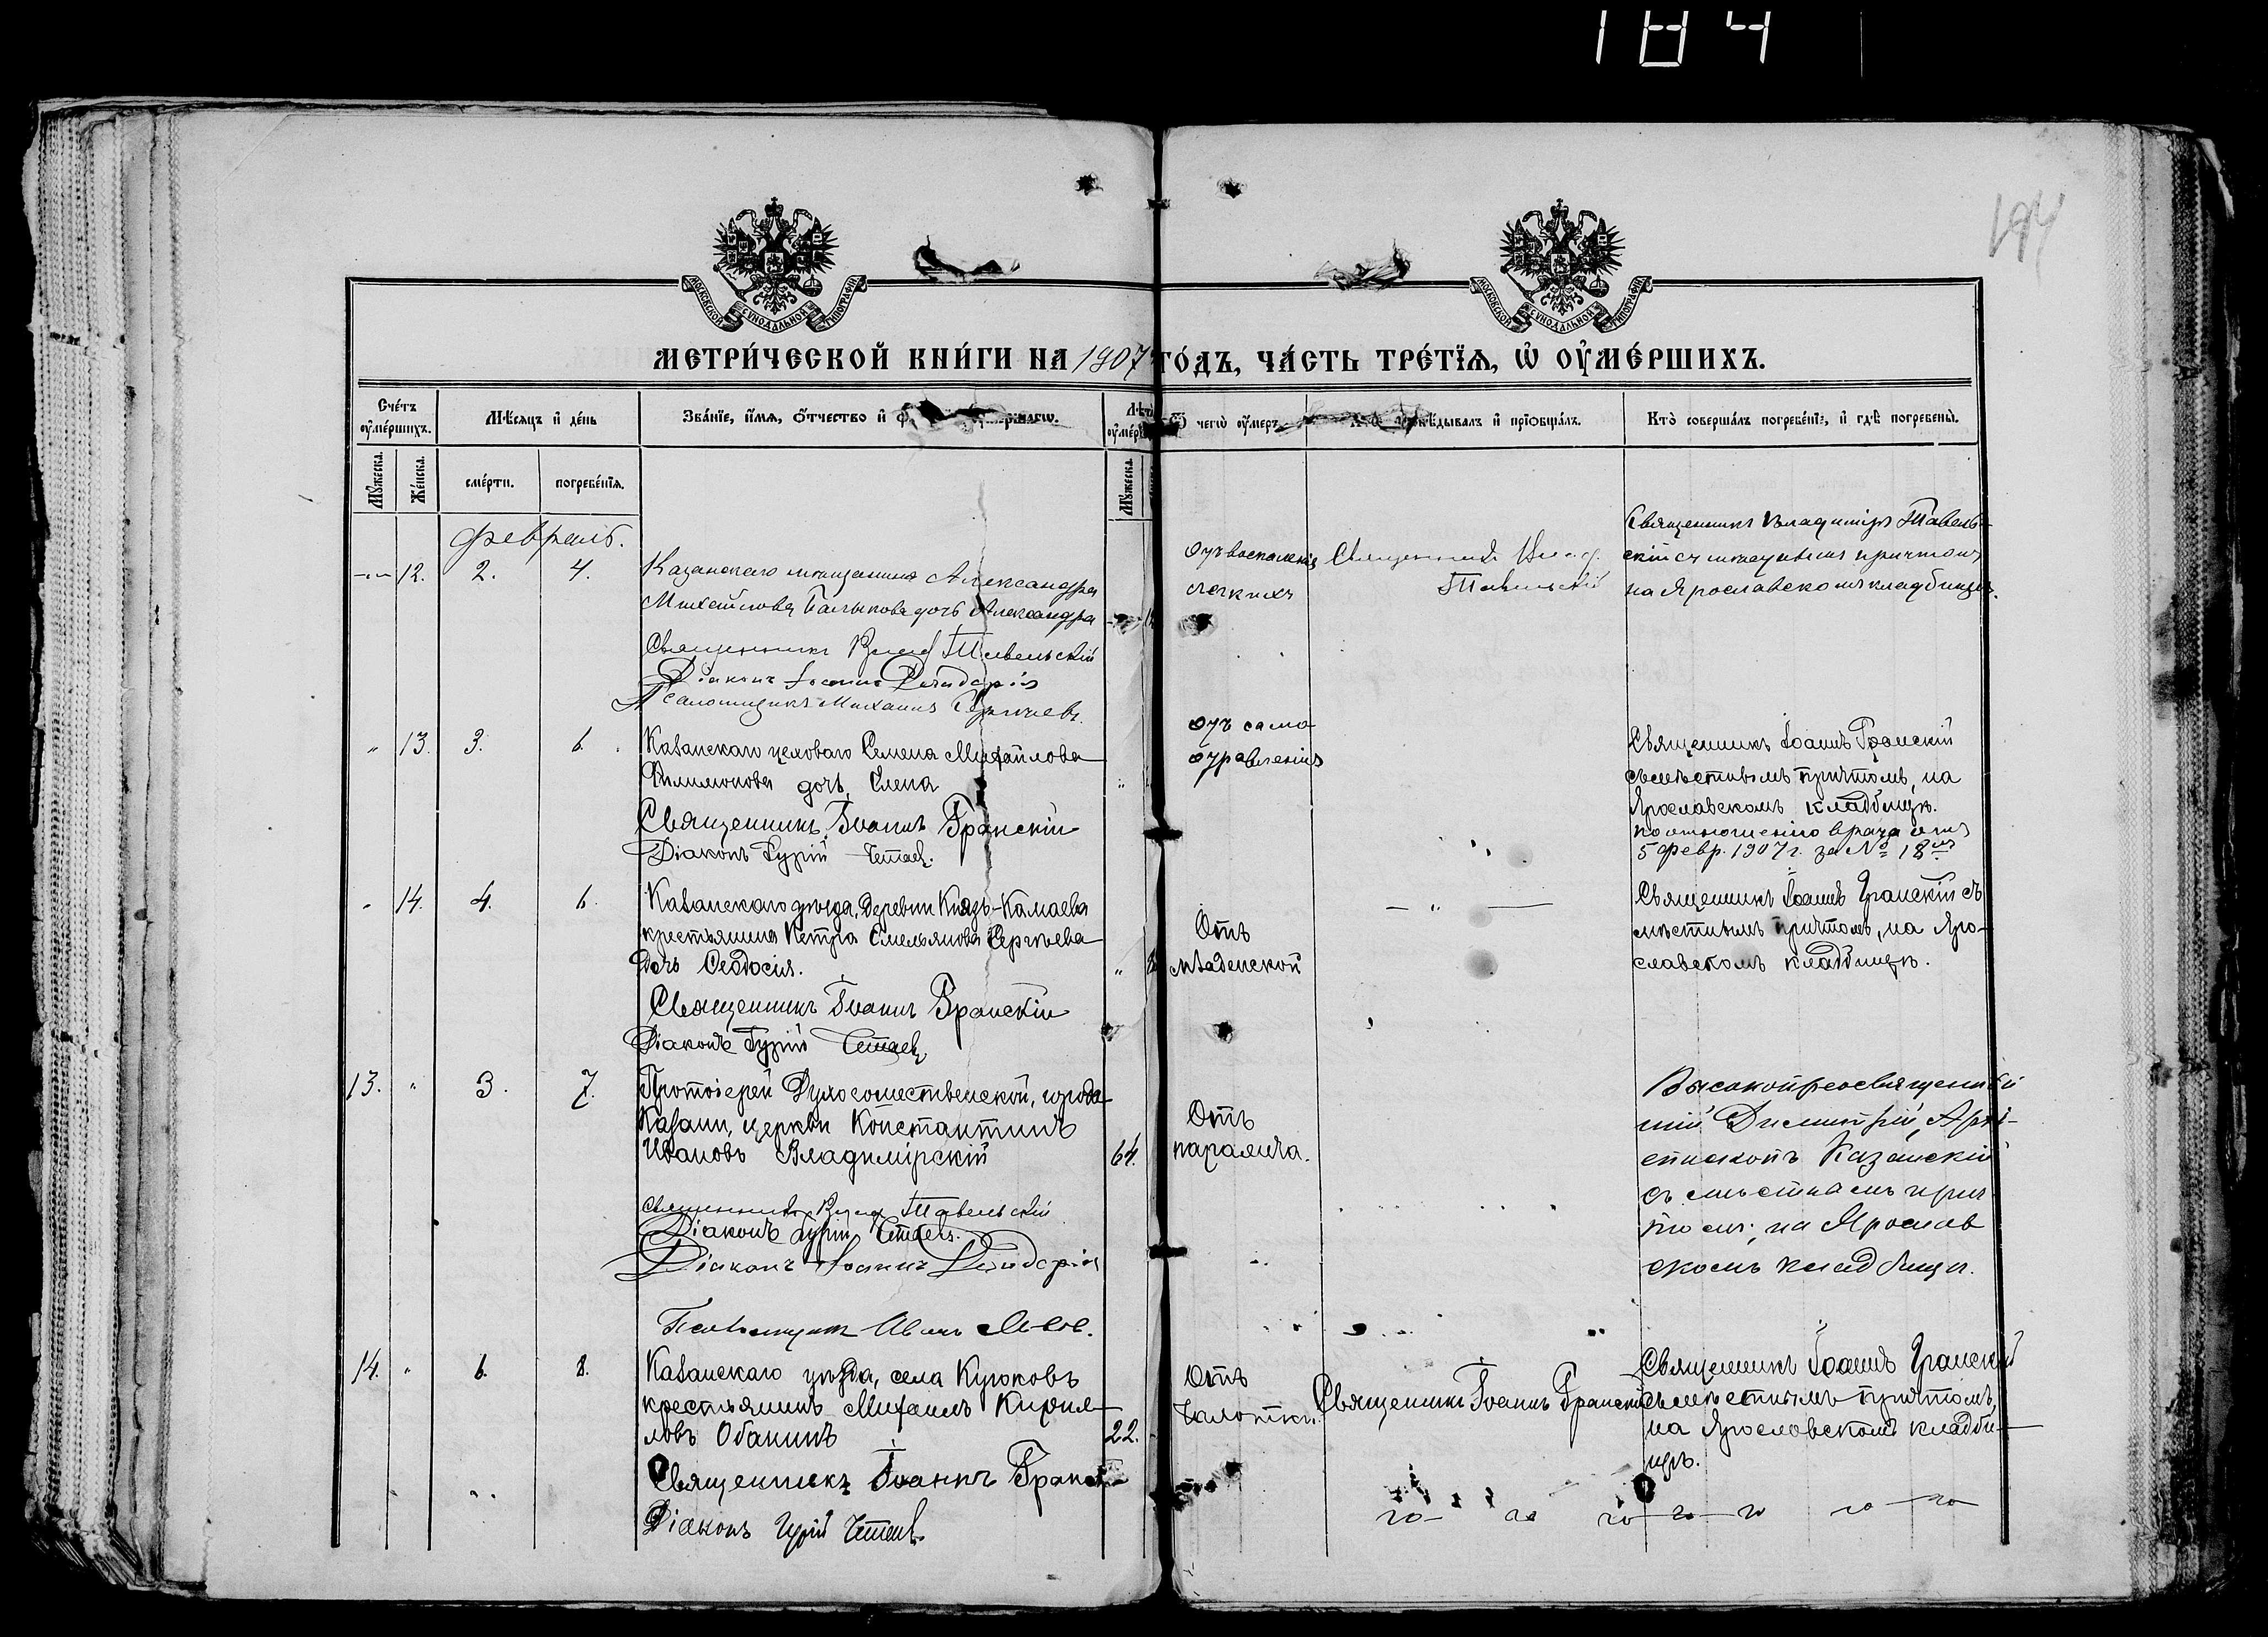 184
194
МОСКОВСКОЙ СѴНОДАЛЬНОЙ ТИПОГРАФІИ
МОСКОВСКОЙ СѴНОДАЛЬНОЙ ТИПОГРАФІИ
МЕТРИ́ЧЕСКОЙ КНИ́ГИ НА 1907 ГО́ДЪ, ЧА́СТЬ ТРЕ́ТЇѦ, Ѡ҆ ОУ҆МЕ́РШИХЪ.
Сче́тъ оу҆ме́ршихъ.
Мѣ́сяцъ и҆ де́нь
Зва́нїе, и҆́мѧ, ѻ҆́тчество и҆
Лѣ́та оу҆ме́рш
Ѿ чегѡ̀ оу҆́меръ
и҆сповѣ́дывалъ и҆ прїѻбща́лъ.
Кто̀ соверша́лъ погребе́нїе, и҆ гдѣ̀ погребены̀.
Мꙋ́жеска.
Же́нска.
сме́рти.
погребе́нїѧ.
Мꙋ́жеска
Февраль.
12.
2.
4.
Казанскаго мѣщанина Александра
Михайлова дочь Александра
Священникъ Влад Тавельскій
Діаконъ Іоаннъ
Псаломщикъ Михаилъ
Отъ воспаленія
легкихъ
Священникъ Влад.
Тавельскій
Священникъ Владиміръ Тавель-
скій съ местнымъ причтомъ
на Ярославскомъ кладбищѣ.
" 13. 3. 6.
Казанскаго цеховаго Семена Михайлова
Филимонова дочь, Елена
Священникъ Іоаннъ Гранскій
Діаконъ Гурій
Отъ само
отравленія
Священникъ Іоаннъ Гранскій
съ мѣстнымъ причтомъ, на
Ярославскомъ кладбищѣ.
по отношенію врача отъ
5 февр. 1907 г. за № 18
" 14. 4. 6.
Казанскаго уѣзда, деревни Князь-Камаева
крестьянина Петра Емельянова Сергѣева
дочь Ѳеодосія.
Священникъ Іоаннъ Гранскій
Діаконъ Гурій
Отъ
младенской
Священникъ Іоаннъ Гранскій съ
мѣстнымъ причтомъ, на Яро-
славскомъ кладбищѣ.
13. " 3. 7.
Протоіерей Духосошественской, города
Казани, церкви Константинъ
Ивановъ Владимірскій
64.
Священникъ Влад Тавельскій
Діаконъ Гурій
Діаконъ Іоаннъ
Псаломщикъ Иванъ
Отъ
паралича.
Высокопреосвященнѣй
шій Димитрій, Архі-
епископъ Казанскій
съ мѣстнымъ прич
томъ, на Ярослав
скомъ кладбищѣ.
14. " 6. 8.
Казанскаго уѣзда, села Куюковъ
крестьянинъ Михаилъ Кирил-
ловъ Обакинъ
22.
Священникъ Іоаннъ
Діаконъ Гурій
Отъ
чахотки.
Священникъ Іоаннъ Гранскій
Священникъ Іоаннъ Гранскій
съ мѣстнымъ причтомъ,
на Ярославскомъ кладби-
щѣ.